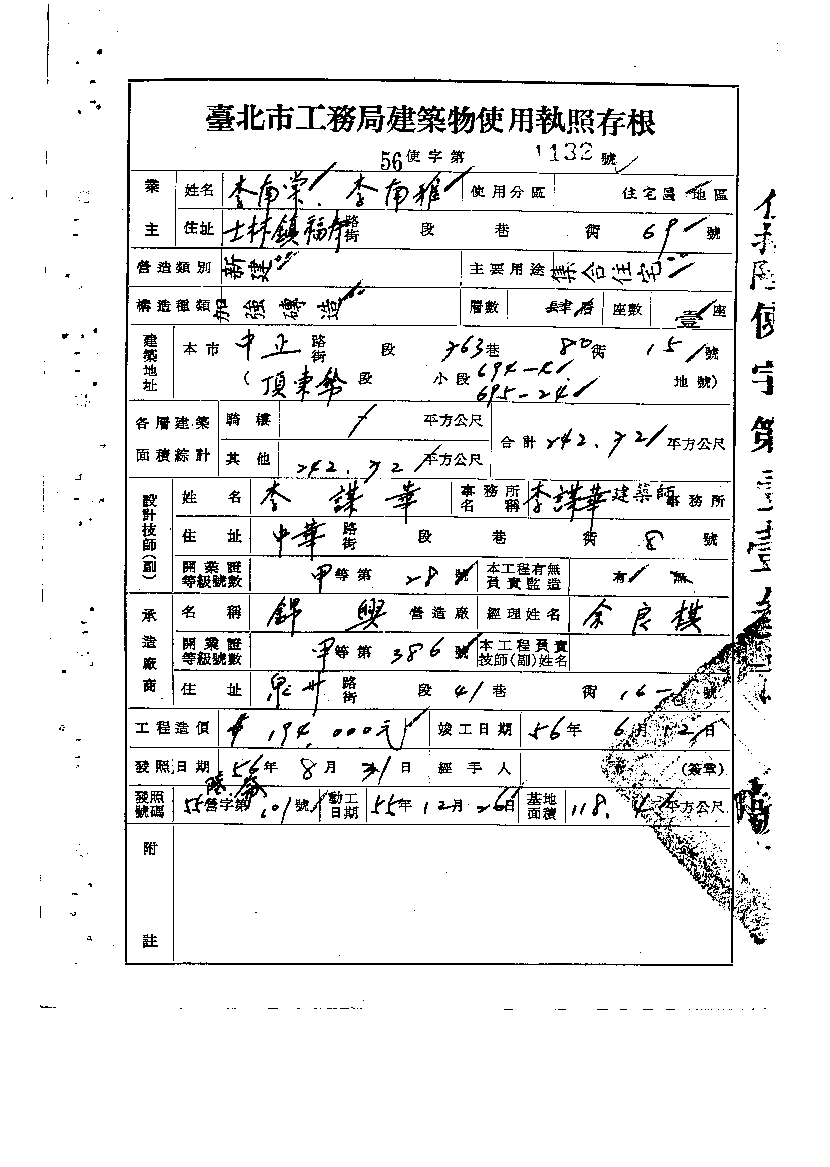 臺北市工務局建築物使用執照存根
56使字第1132號
業主 姓名 李南棠、李南雅 使用分區 住宅區 地區
住址 士林鎮福寿路街 段 巷 衖 69號
營造類別 新建 主要用途 集合住宅
構造種類 加強磚造 層數 肆層 座數 壹座
建築地址 本市 中正路街 段 763巷 80衖 15號
(頂東勢段 小段 694- 695-24 地號)
各層建築面積綜計 騎樓 平方公尺 合計 242.72平方公尺
其他 242.72平方公尺
設計技師(副) 姓名 李謀華 事務所名稱 李謀華建築師事務所
住址 中華路街 段 巷 衖 8號
開業證等級號數 甲等第28號 本工程有無負責監造 有 無
承造廠商 名稱 錦興 營造廠 經理姓名 余良棋
開業證等級號數 甲等第386號 本工程負責技師(副)姓名
住址 泉州路街 段 41巷 衖 16-號
工程造價 194,000元 竣工日期 56年6月12日
發照日期 56年8月31日 經手人 (簽章)
發照號碼 55營字第101號 動工日期 55年12月26日 基地面積 118.4平方公尺
附註
使字第壹壹